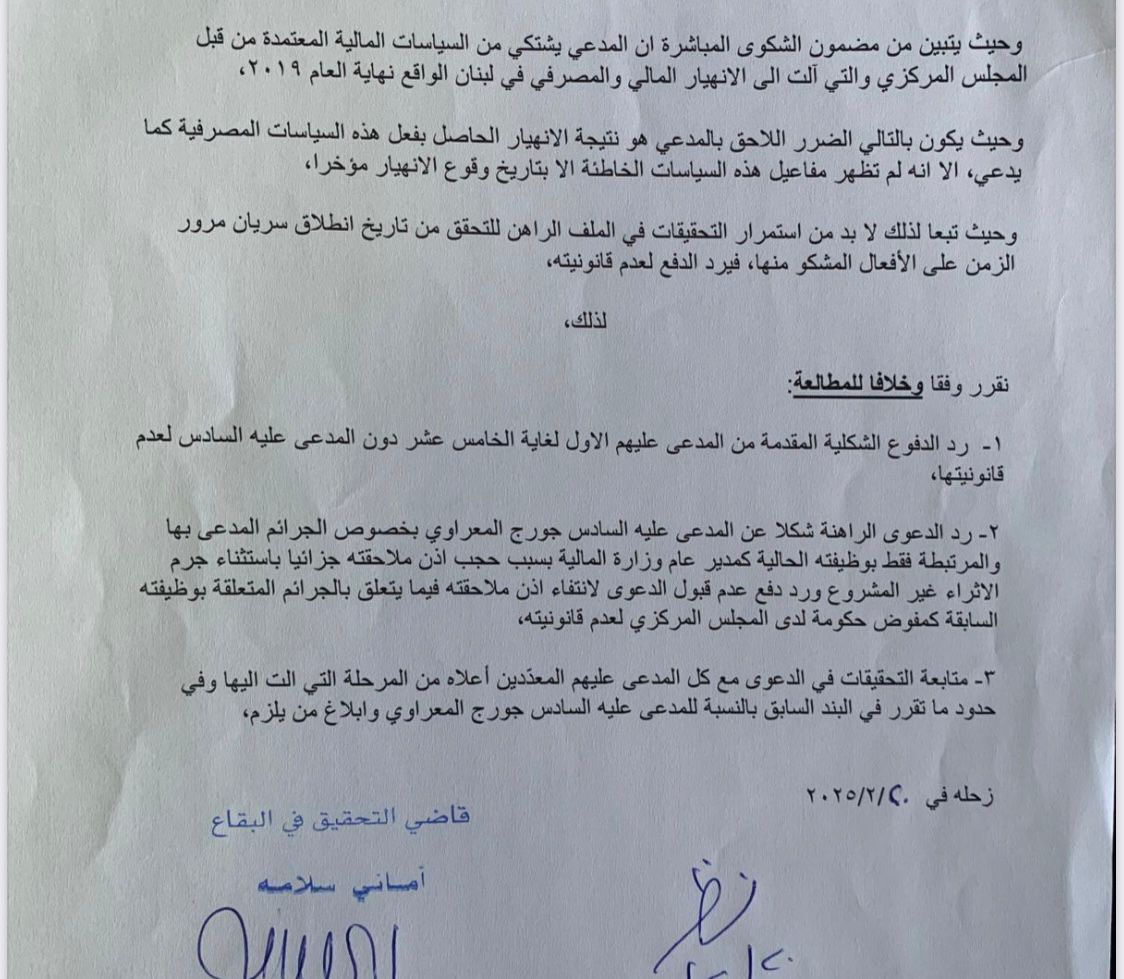 وحيث يتبين من مضمون الشكوى المباشرة ان المدعي يشتكي من السياسات المالية المعتمدة من قبل
المجلس المركزي والتي آلت الى الانهيار المالي والمصرفي في لبنان الواقع نهاية العام ٢٠١٩،
وحيث يكون بالتالي الضرر اللاحق بالمدعي هو نتيجة الانهيار الحاصل بفعل هذه السياسات المصرفية كما
يدعي، الا انه لم تظهر مفاعيل هذه السياسات الخاطئة الا بتاريخ وقوع الانهيار مؤخرا،
وحيث تبعا لذلك لا بد من استمرار التحقيقات في الملف الراهن للتحقق من تاريخ انطلاق سريان مرور
الزمن على الأفعال المشكو منها، فيرد الدفع لعدم قانونيته،
لذلك،
نقرر وفقا وخلافا للمطالعة:
١- رد الدفوع الشكلية المقدمة من المدعى عليهم الاول لغاية الخامس عشر دون المدعى عليه السادس لعدم
قانونيتها،
٢- رد الدعوى الراهنة شكلا عن المدعى عليه السادس جورج المعراوي بخصوص الجرائم المدعى بها
والمرتبطة فقط بوظيفته الحالية كمدير عام وزارة المالية بسبب حجب اذن ملاحقته جزائيا باستثناء جرم
الاثراء غير المشروع ورد دفع عدم قبول الدعوى لانتفاء اذن ملاحقته فيما يتعلق بالجرائم المتعلقة بوظيفته
السابقة كمفوض حكومة لدى المجلس المركزي لعدم قانونيته،
٣- متابعة التحقيقات في الدعوى مع كل المدعى عليهم المعدّدين أعلاه من المرحلة التي الت اليها وفي
حدود ما تقرر في البند السابق بالنسبة للمدعى عليه السادس جورج المعراوي وابلاغ من يلزم،
زحله في ٢٠/٢/٢٠٢٥
قاضي التحقيق في البقاع
أماني سلامه
نظر